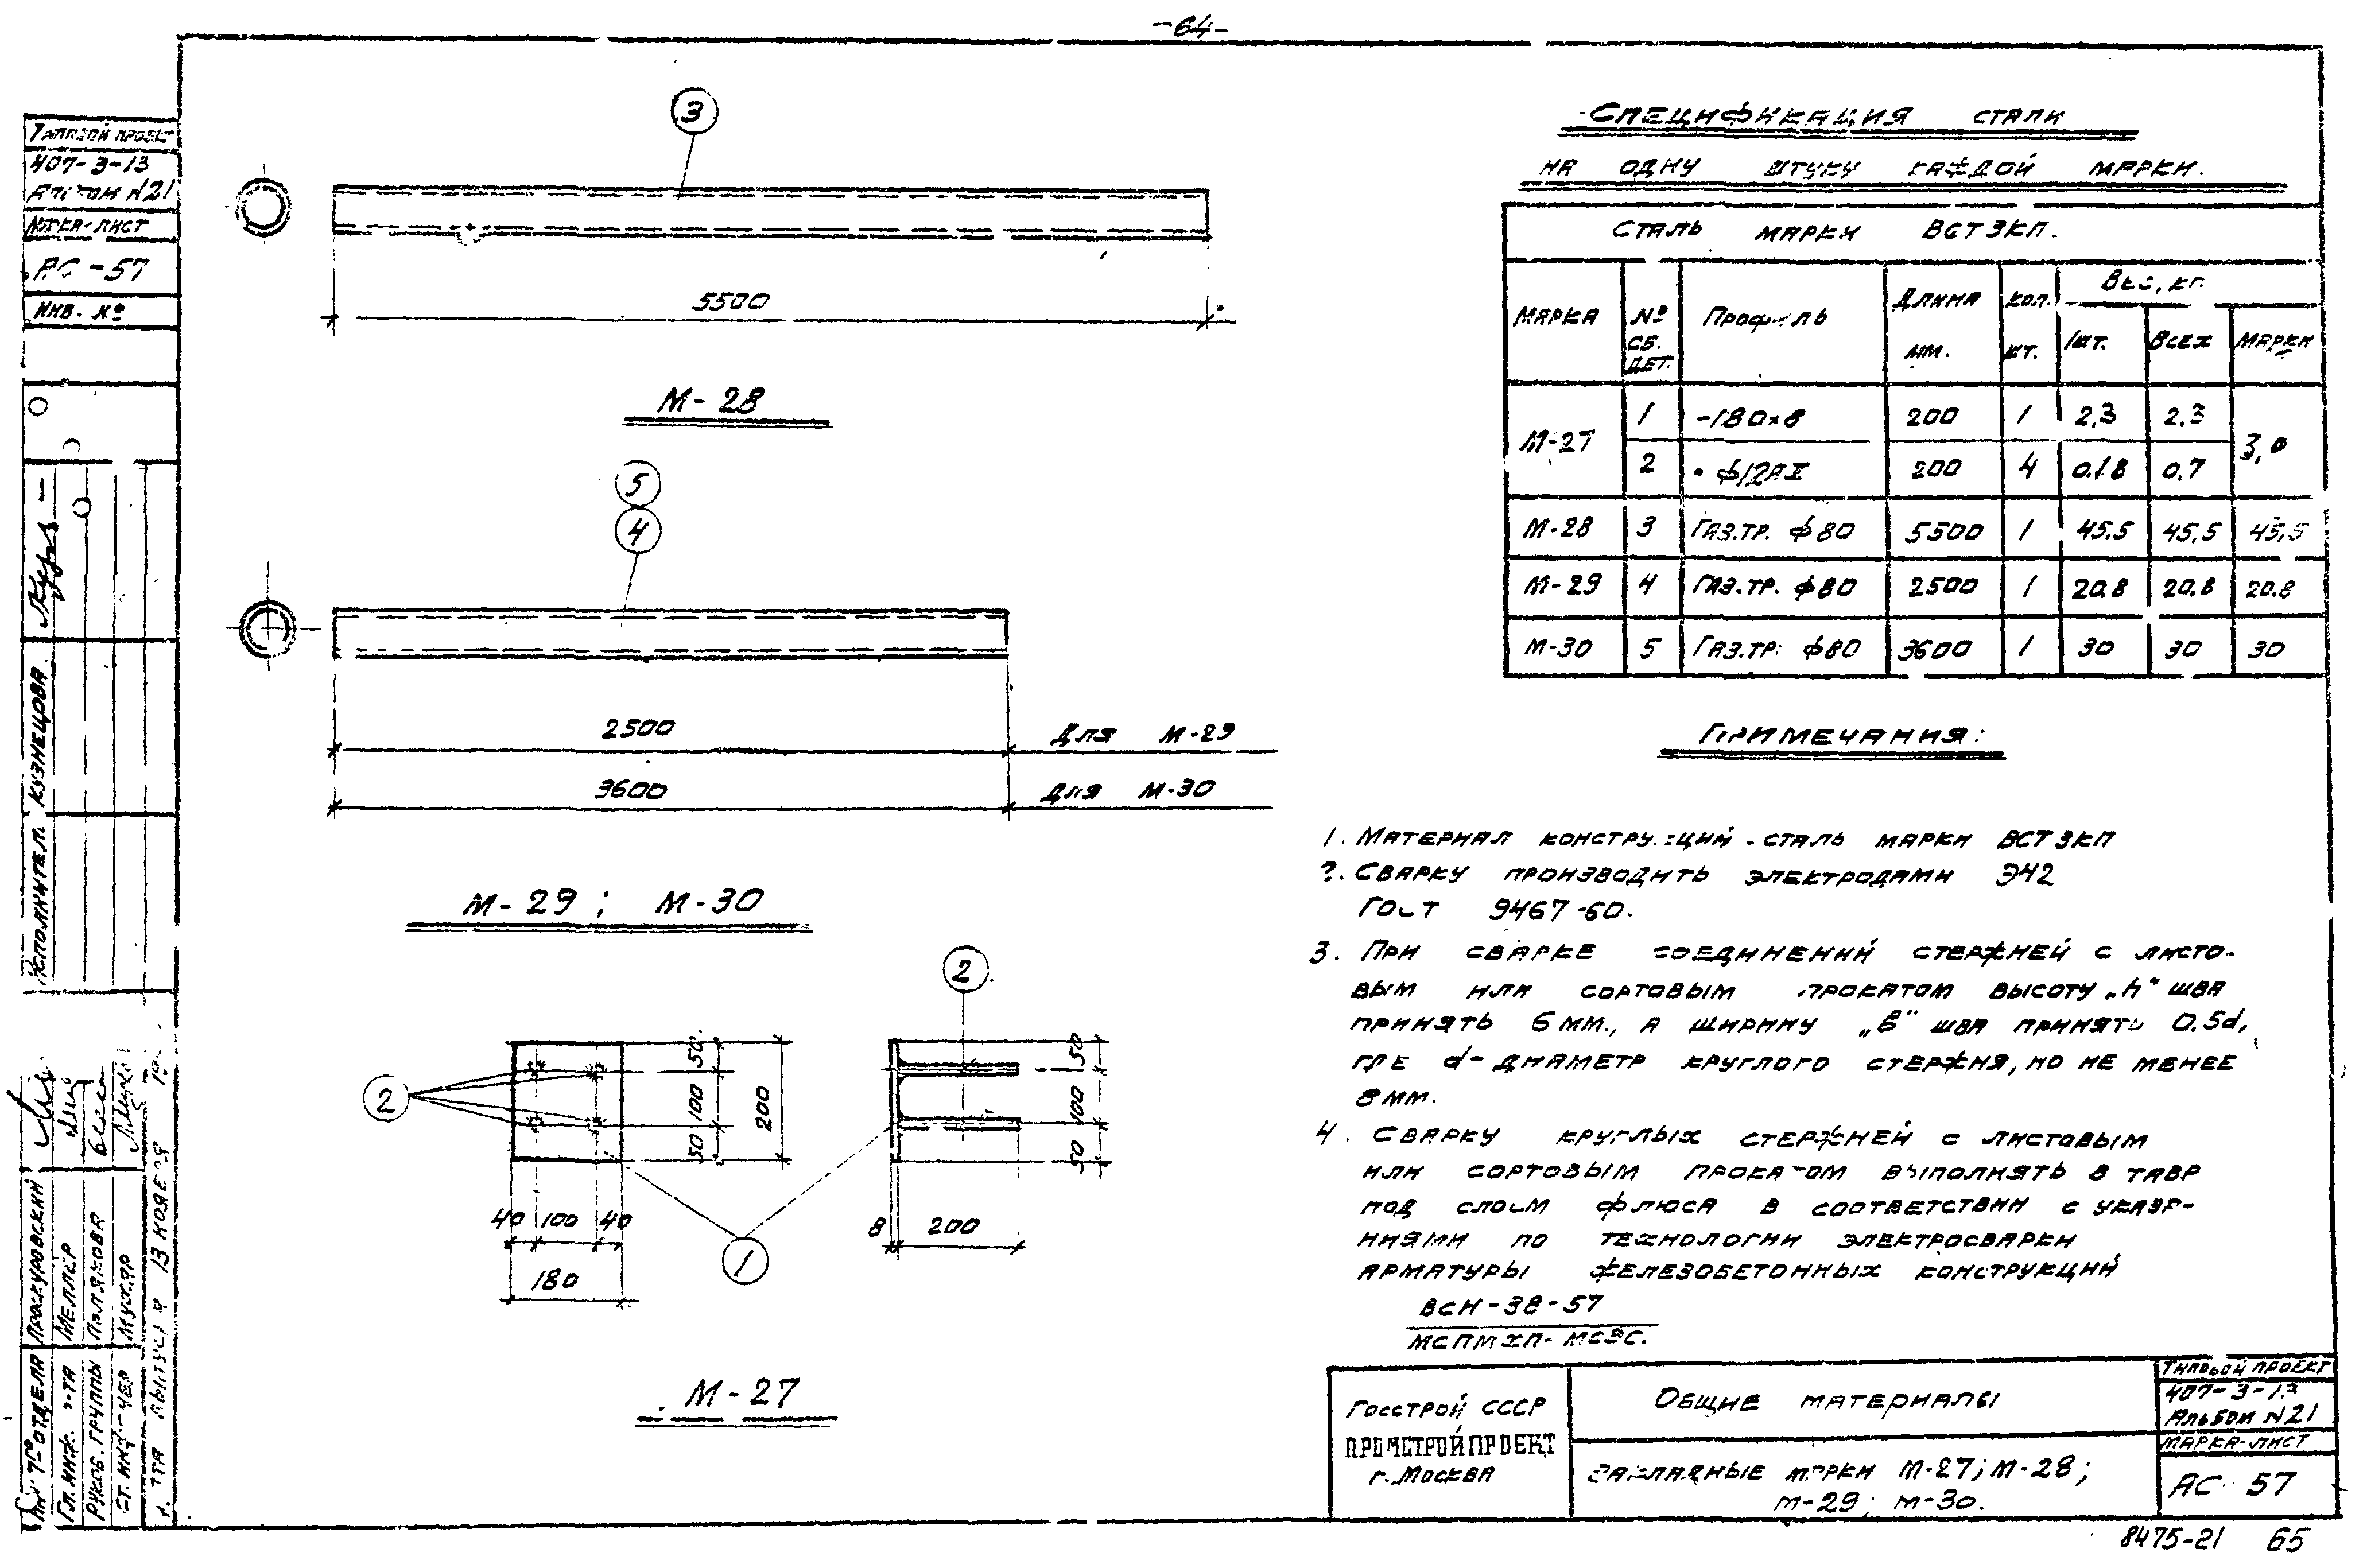 -64-
Типовой проект
407-3-13
Альбом №21
Марка-лист
АС-57
Инв. №
3
5500
М-28
5
4
2500 Для М-29
3600 Для М-30
М-29; М-30
2
2
50
100
50
200
50
100
50
40 100 40
180
8 200
1
М-27
Спецификация стали
на одну штуку каждой марки.
Сталь марки ВСТ3КП.
Марка № сб. дет. Профиль Длина мм. Кол. шт. Вес, кг.
1шт. Всех Марки
М-27 1 -180×8 200 1 2,3 2,3 3,0
2 • ф12АII 200 4 0.18 0.7
М-28 3 Газ.тр. ф80 5500 1 45.5 45,5 45,5
М-29 4 Газ.тр. ф80 2500 1 20.8 20.8 20.8
М-30 5 Газ.тр. ф80 3600 1 30 30 30
Примечания:
1. Материал конструкций - сталь марки ВСТ3КП
2. Сварку производить электродами Э42
ГОСТ 9467-60.
3. При сварке соединений стержней с листо-
вым или сортовым прокатом высоту „h" шва
принять 6мм., а ширину „в" шва принять 0.5d,
где d- диаметр круглого стержня, но не менее
8мм.
4. Сварку круглых стержней с листовым
или сортовым прокатом выполнять в тавр
под слоем флюса в соответствии с указа-
ниями по технологии электросварки
арматуры железобетонных конструкций
ВСН-38-57
МСПМХП-МСЭС.
Госстрой СССР
ПРОМСТРОЙПРОЕКТ
г. Москва
Общие материалы
Закладные марки М-27; М-28;
М-29; М-30.
Типовой проект
407-3-13
Альбом №21
Марка-лист
АС-57
8475-21 65
Исполнител. Кузнецова
отдела Проскуровский
Гл. инж. Меллер
Руков. группы Полякова
Ст. Мухляр